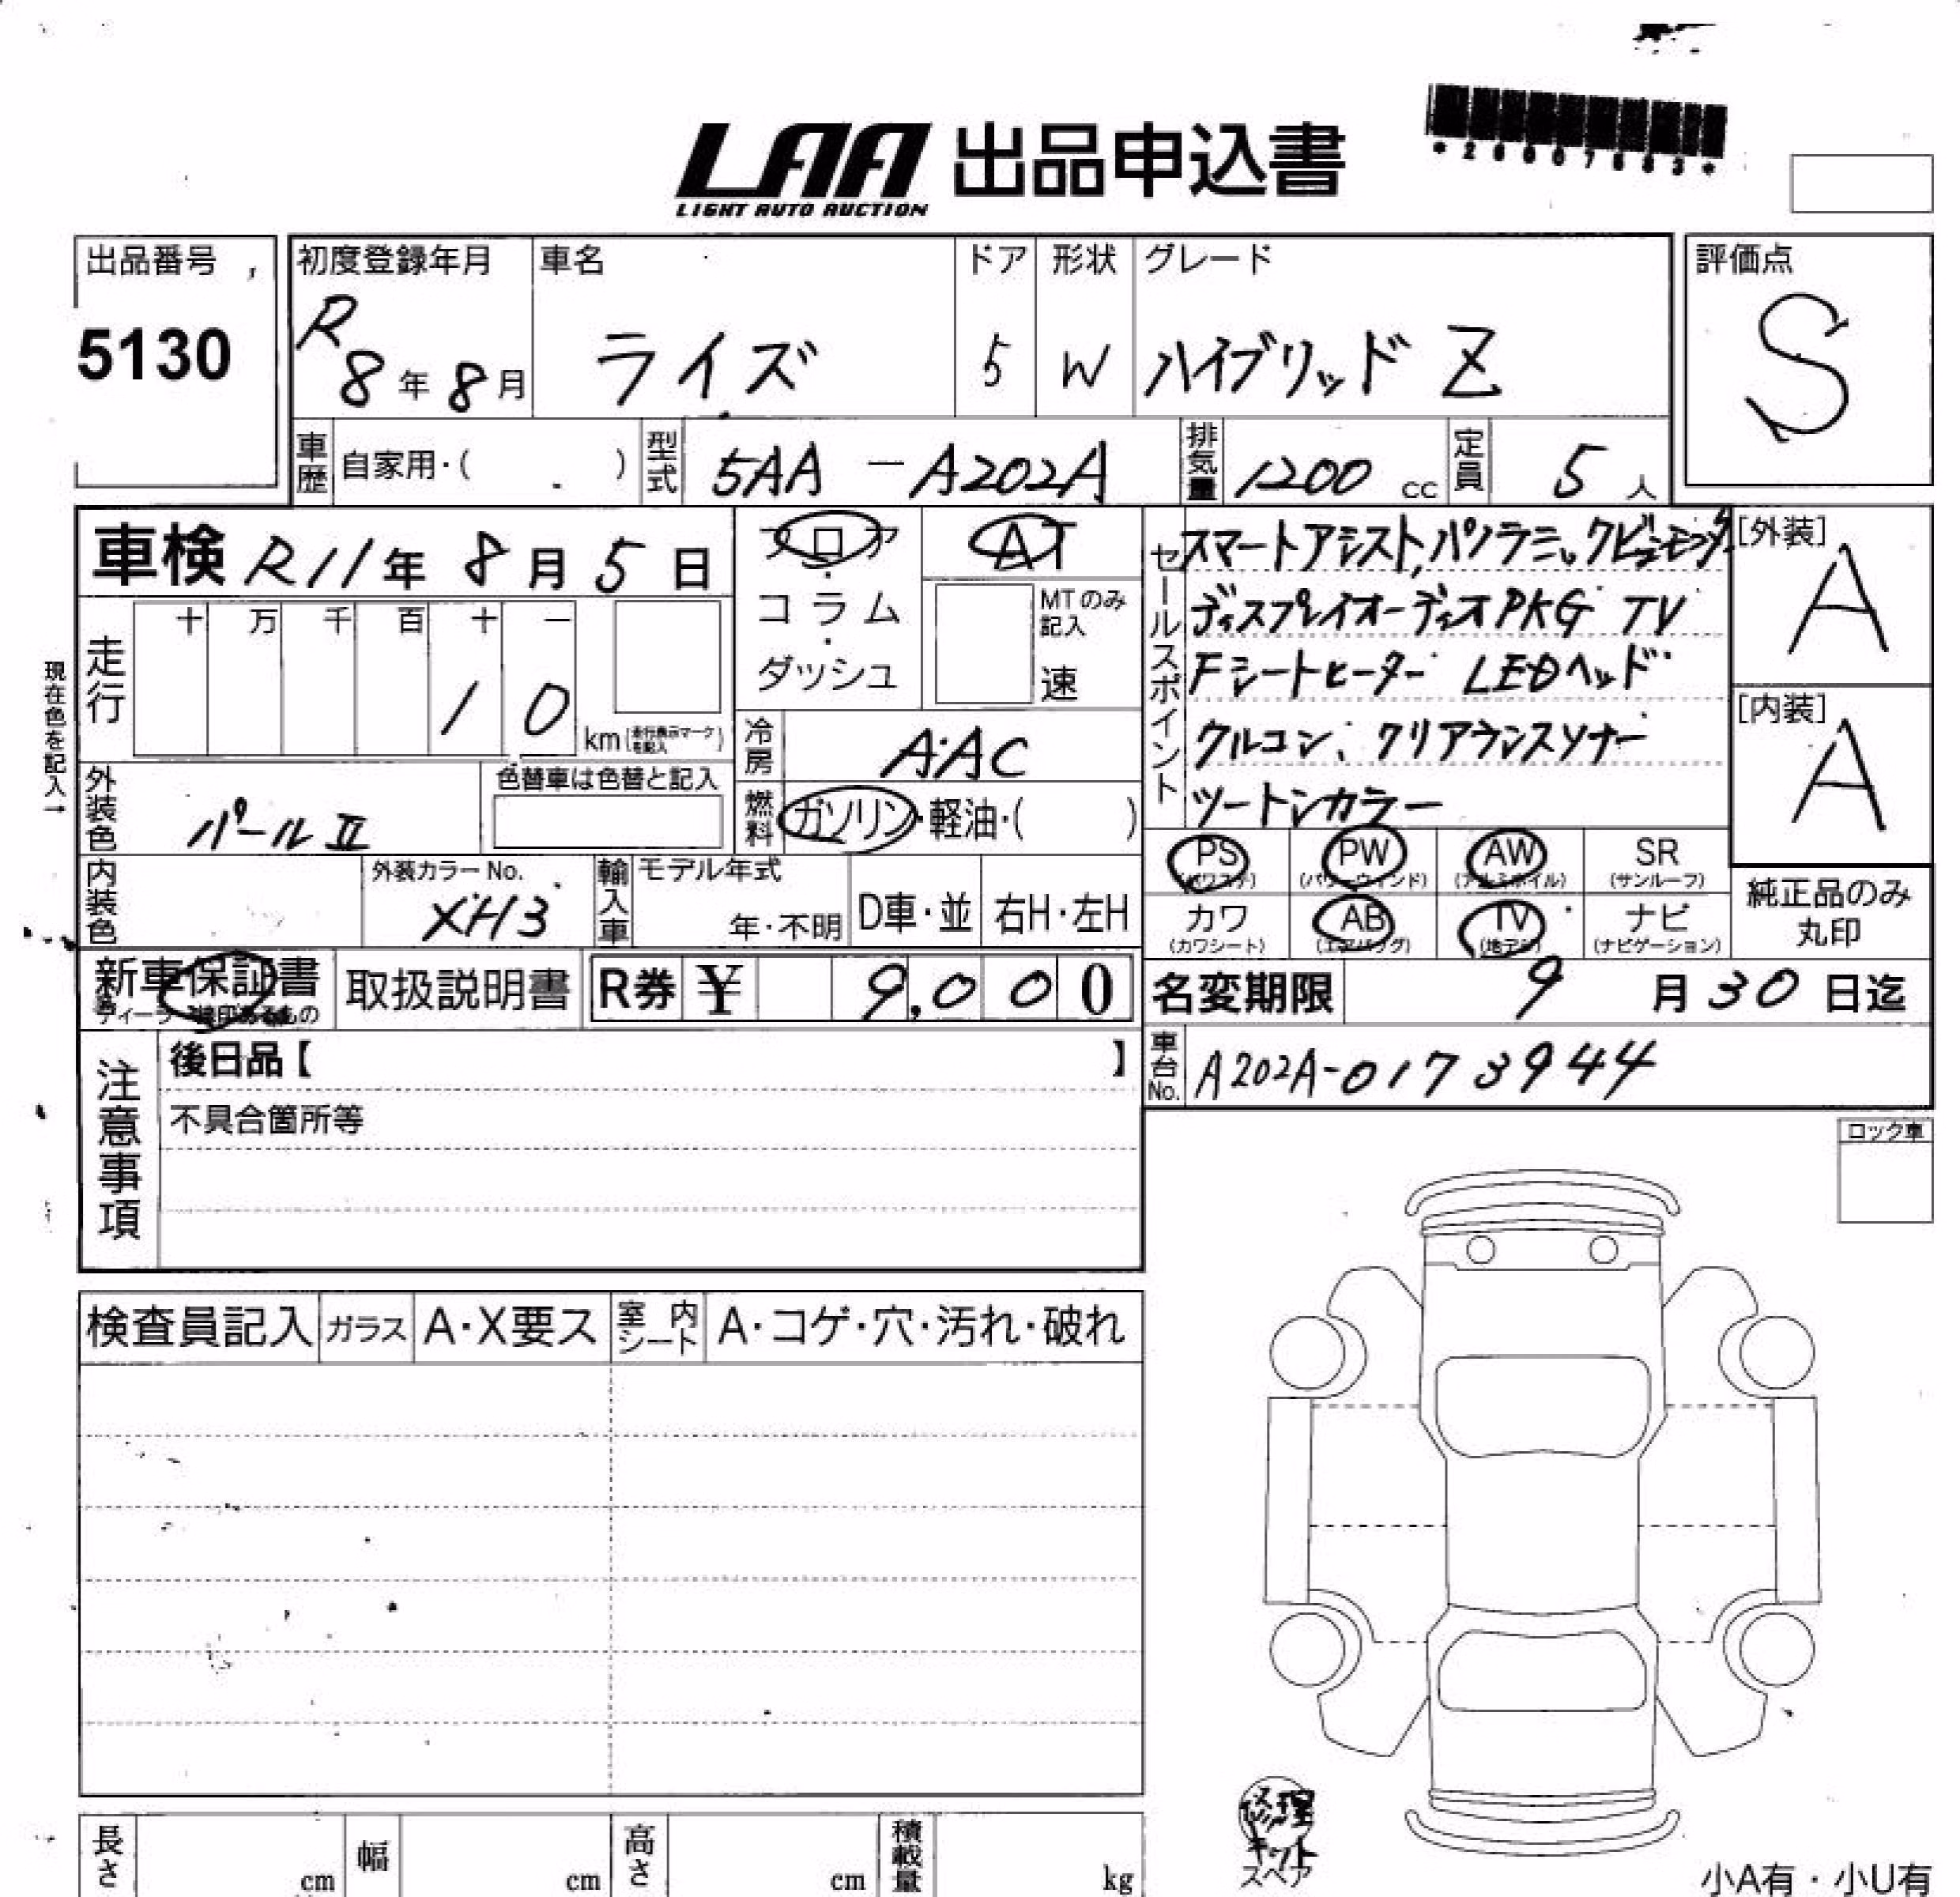 LAA 出品申込書
LIGHT AUTO AUCTION
出品番号
5130
初度登録年月
R8年8月
車名
ライズ
ドア
5
形状
W
グレード
ハイブリッド Z
評価点
S
車歴 自家用・( )
型式 5AA-A202A
排気量 1200 cc
定員 5人
車検 R11年8月5日
フロア・コラム・ダッシュ
AT
MTのみ記入
速
現在色を記入→
走行 十 万 千 百 十 一
10 km(走行表示マークを記入)
冷房 AAC
外装色 パールⅡ
色替車は色替と記入
燃料 ガソリン・軽油・( )
セールスポイント
スマートアシスト,パノラミックビューモニター
ディスプレイオーディオPKG TV
Fシートヒーター LEDヘッド
クルコン、クリアランスソナー
ツートンカラー
[外装]
A
[内装]
A
内装色
外装カラーNo.
XH3
輸入車 モデル年式
年・不明 D車・並 右H・左H
PS (パワステ) PW (パワーウィンド) AW (アルミホイル) SR (サンルーフ)
カワ (カワシート) AB (エアバッグ) TV (地デジ) ナビ (ナビゲーション)
純正品のみ
丸印
新車保証書
取扱説明書
R券 ¥ 9,000
名変期限 9月30日迄
車台No. A202A-0173944
注意事項
後日品【 】
不具合箇所等
ロック車
検査員記入 ガラス A・X要ス 室内シート A・コゲ・穴・汚れ・破れ
修理
キット
スペア
長さ cm 幅 cm 高さ cm 積載量 kg
小A有・小U有